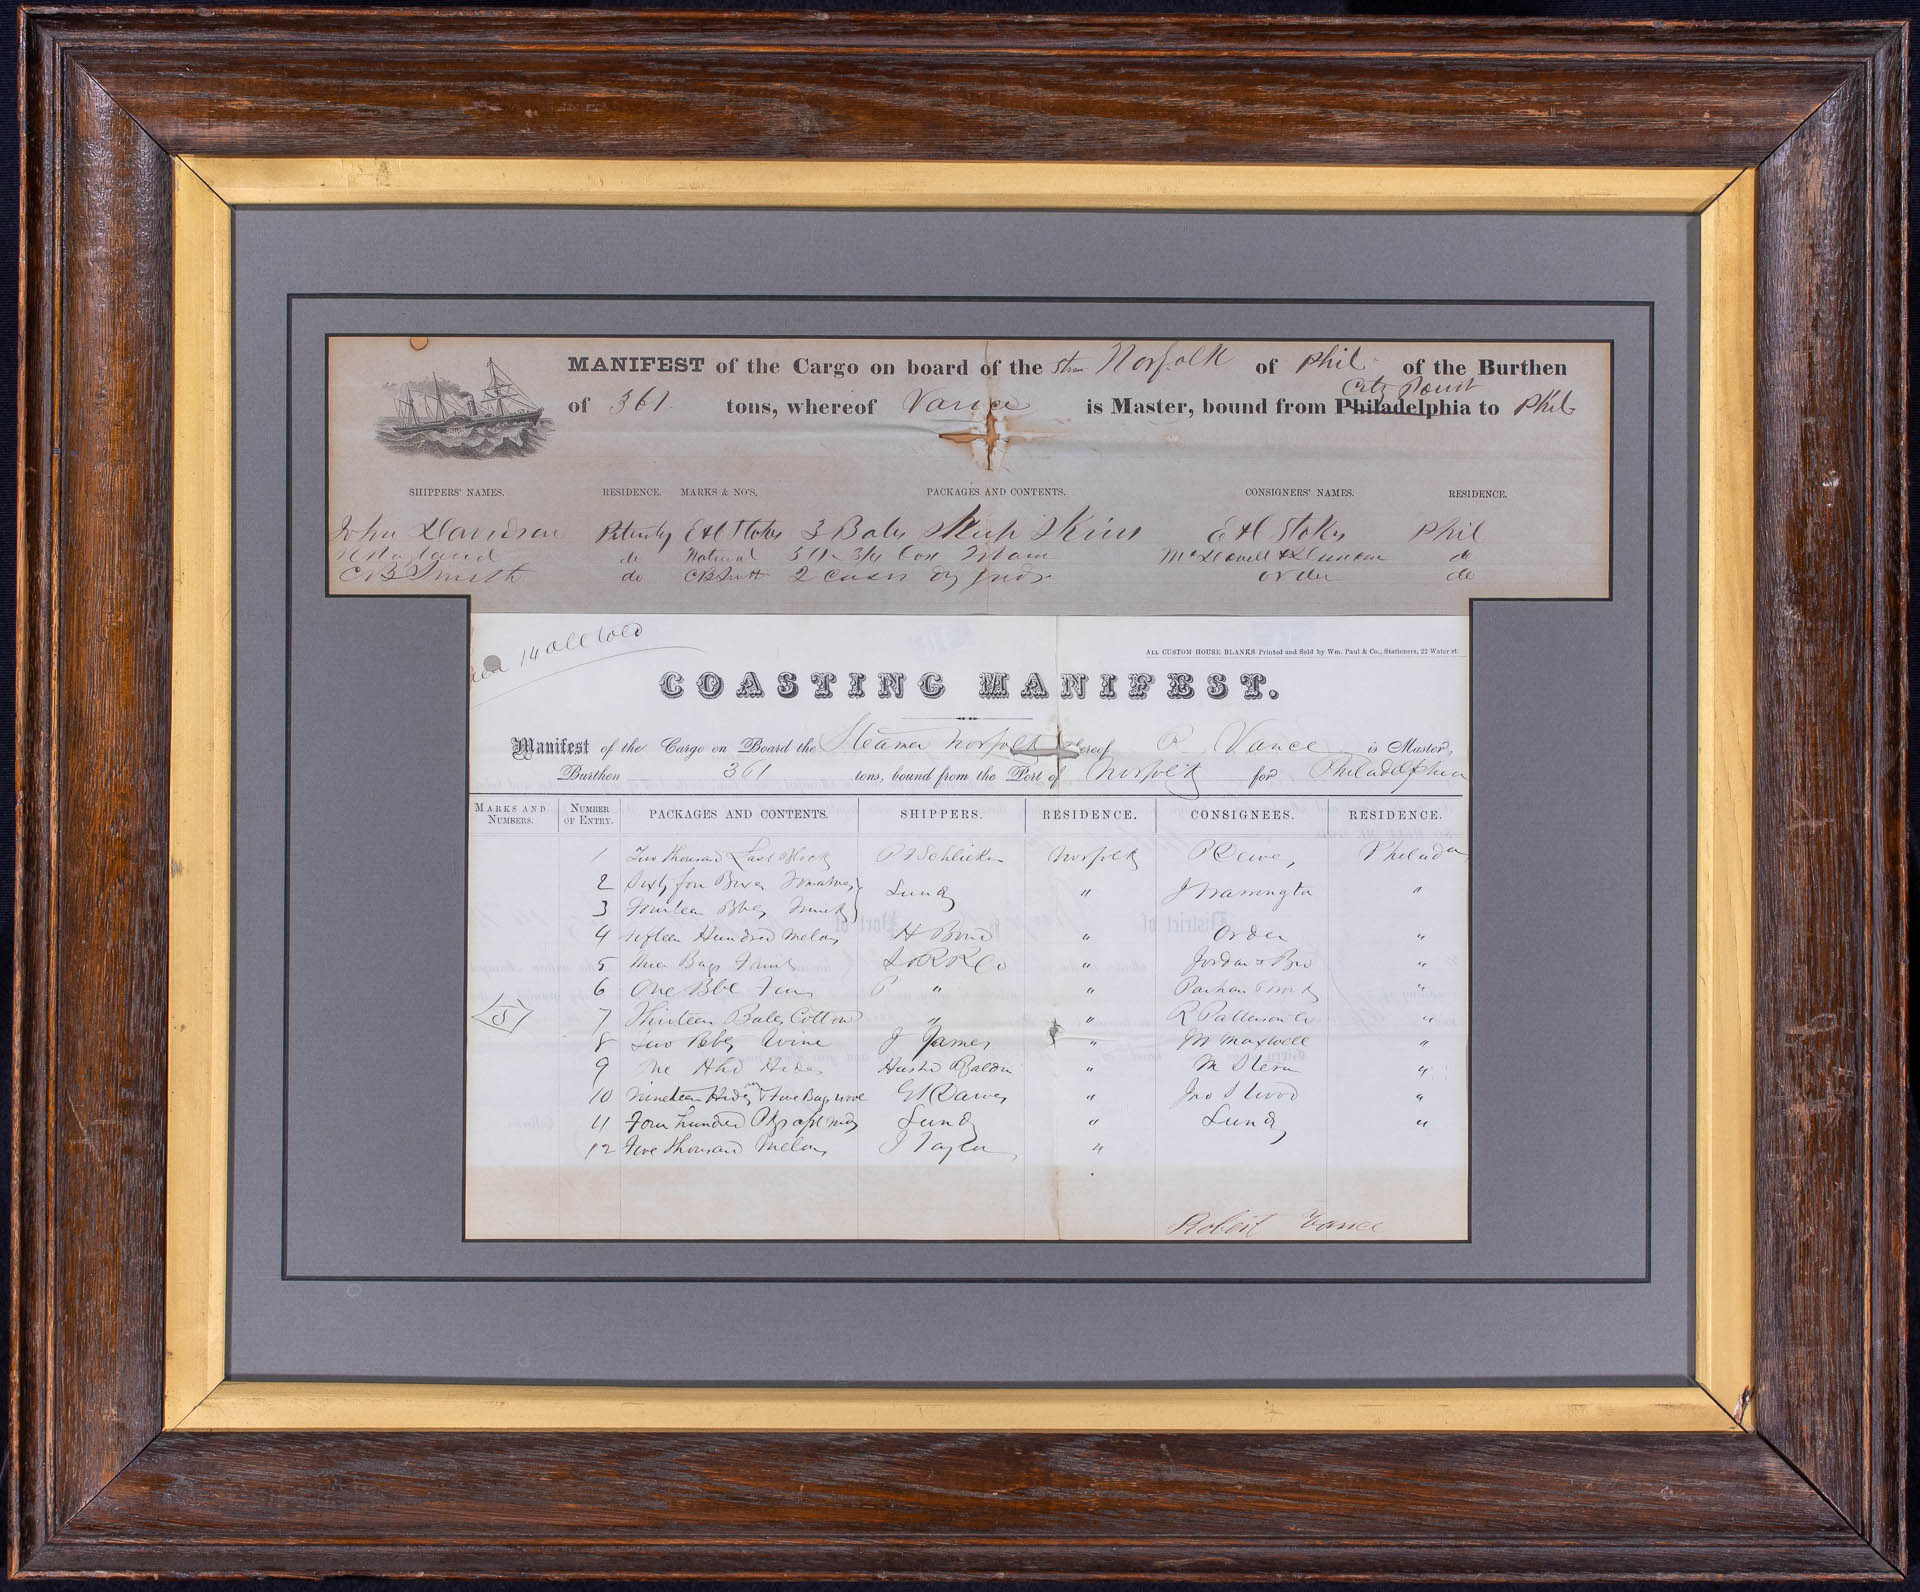 MANIFEST of the Cargo on board of the Stm Norfolk of Phil of the Burthen
City Point
of 361 tons, whereof Vance is Master, bound from Philadelphia to Phil
SHIPPERS' NAMES. RESIDENCE. MARKS & NO'S. PACKAGES AND CONTENTS. CONSIGNERS' NAMES. RESIDENCE.
John Davidson E & C Stokes 3 Bales Sheep Skins E & C Stokes Phil
do do
C B Smith do C B Smith 2 cases dry order do
14 all told
ALL CUSTOM HOUSE BLANKS Printed and Sold by Wm. Paul & Co., Stationers, 22 Water st.
COASTING MANIFEST.
Manifest of the Cargo on Board the Steamer Norfolk whereof R Vance is Master,
Burthen 361 tons, bound from the Port of Norfolk for Philadelphia
MARKS AND NUMBERS. NUMBER OF ENTRY. PACKAGES AND CONTENTS. SHIPPERS. RESIDENCE. CONSIGNEES. RESIDENCE.
1 Two thousand Norfolk Philada
2 Sixty four Boxes Tomatoes Lundy " J Warrington "
3 Fourteen Bbls
4 Hundred Melons H Bond " Order "
5 Bags " Jordan & Bro "
6 One Bbl " " "
S 7 Thirteen Bales Cotton " " R Patterson Co "
8 Two Wine J James " M Maxwell "
9 One Hhd Hides " M Stern "
10 Nineteen Hides & Five Bags wool " Jno S Wood "
11 Four hundred Lundy " Lundy "
12 Five thousand Melons J Taylor "
Robert Vance